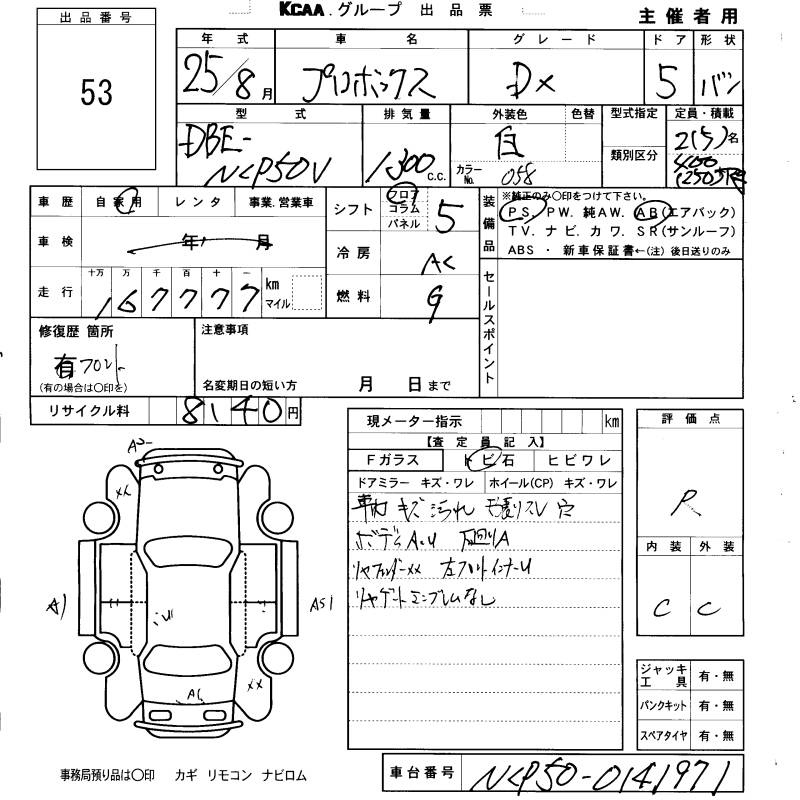 KCAA.グループ 出品票
主催者用
出品番号
53
年式 車名 グレード ドア 形状
25/8月 プロボックス DX 5 バン
型式 排気量 外装色 色替 型式指定 定員・積載
DBE-
NCP50V 1300 c.c. 白 カラーNo. 058 類別区分 2(5)名
400
車歴 自家用 レンタ 事業.営業車
車検 年 月
走行 十万 万 千 百 十 一 km マイル
167777
シフト フロア コラム パネル 5
冷房 AC
燃料 G
装備品
※純正のみ○印をつけて下さい。
PS. PW. 純AW. AB(エアバック)
TV. ナビ. カワ. SR(サンルーフ)
ABS ・ 新車保証書←(注) 後日送りのみ
セールスポイント
修復歴 箇所
有 フロント
(有の場合は○印を)
注意事項
名変期日の短い方 月 日まで
リサイクル料 8140円
現メーター指示 km
【査定員記入】
Fガラス トビ石 ヒビワレ
ドアミラー キズ・ワレ ホイール(CP) キズ・ワレ
車内 キズ 汚れ 穴
ボディA.U 下回りA
リヤフェンダーXX 左フロントインナーU
リヤゲートエンブレムなし
評価点
R
内装 外装
C C
ジャッキ工具 有・無
パンクキット 有・無
スペアタイヤ 有・無
A2-
XX
A1
AS1
XX
事務局預り品は○印 カギ リモコン ナビロム
車台番号 NCP50-0141971